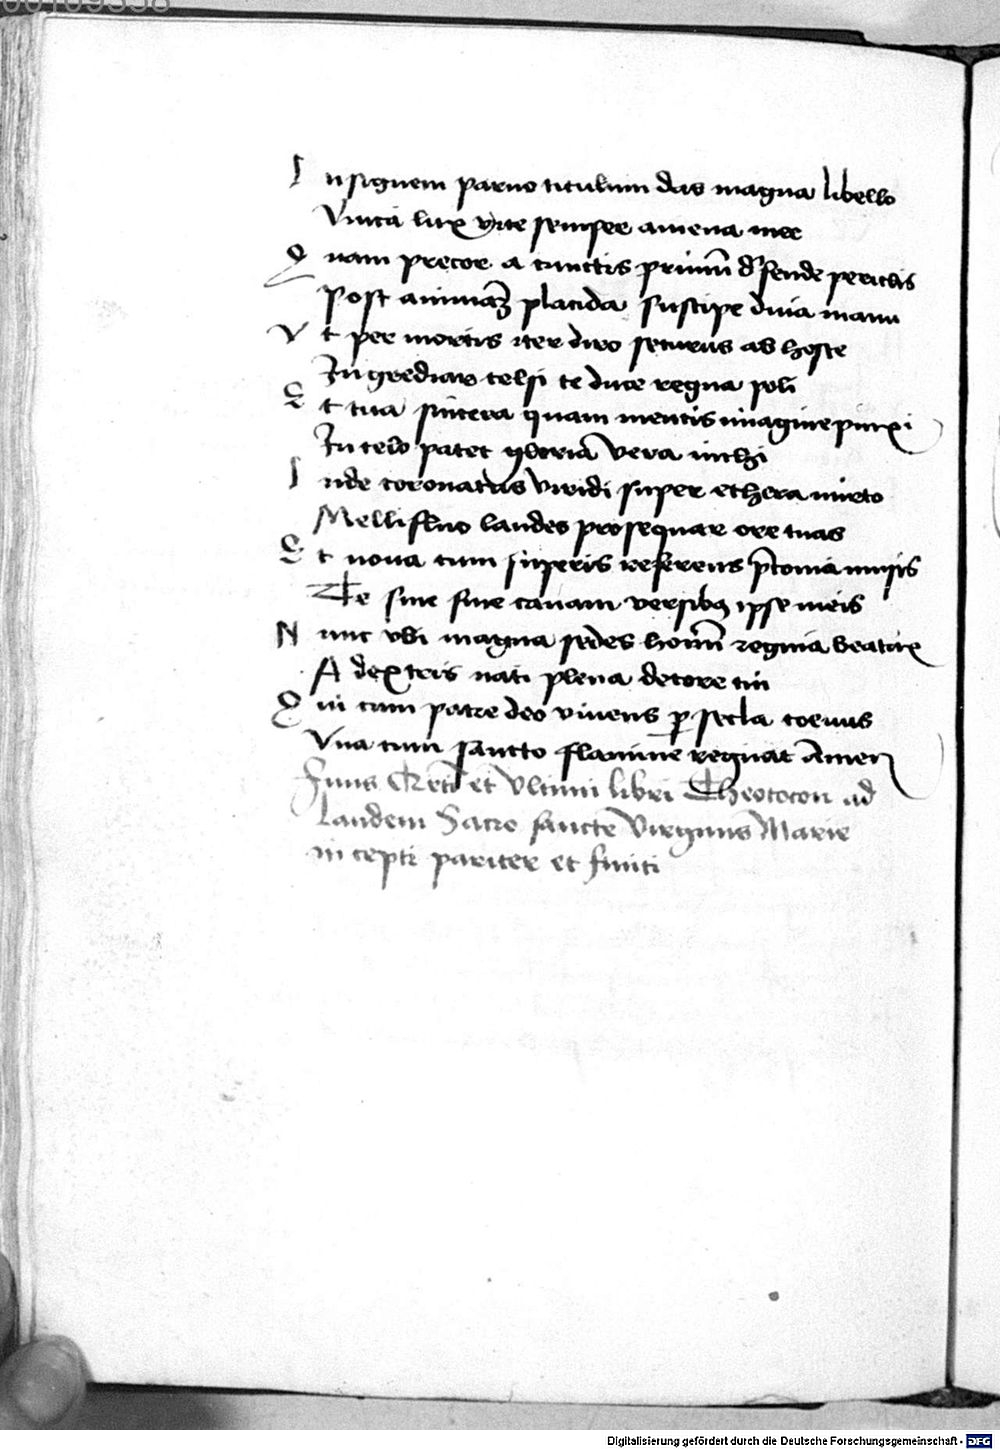 Insignem paruo titulum das magna libello
Vnica lux vite semper amena mee
Quam precor a cunctis primū dʼfende periclis
Post animāꝫ placida suscipe diua manu
Vt per mortis iter diro securus ab hoste
Ingrediar celsi te duce regna poli
Et tua sincera quam mentis imagine pinxi
In celo patet gloriā vera michi
Inde coronatus viridi super ethera mirto
Mellifluo laudes prosequar ore tuas
Et noua cum superis referens p̄conia musis
Te sine fine canam versibꝫ ipse meis
Nunc vbi magna sedes homīnū regina beatrix
A dextris nati plena decore tui
Qui cum patre deo viuens ꝑ secla coeuus
Vna cum sancto flamine regnat Amen
Finis et vltimi libri Theotocon ad
laudem Sacre sancte virginis Marie
incepti pariter et finiti
Digitalisierung gefördert durch die Deutsche Forschungsgemeinschaft - DFG